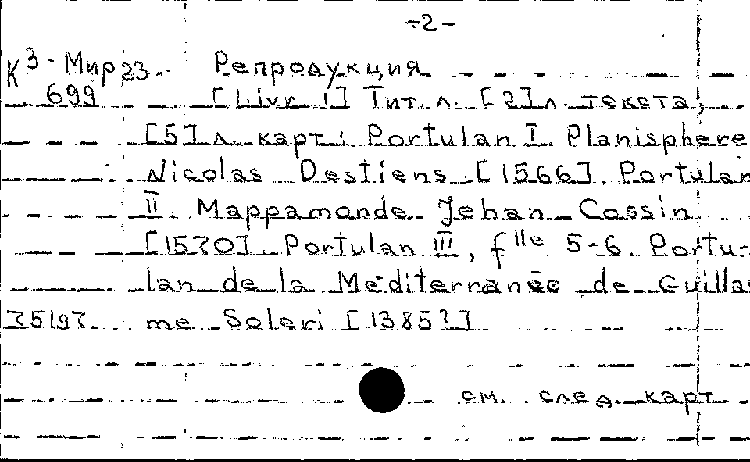 -2-
К3-Мир23 Репродукция
699 [Livr. I] Тит. л. [2] л. текста,
[5] л. карт: Portulan I. Planisphere
Nicolas Destiens [1566] Portulan
II. Mappamonde Jehan Cossin
[1570] Portulan III, flle 5-6. Portu-
lan de la Méditerranée de Guillau
me Soleri [1385?]
см. след. карт